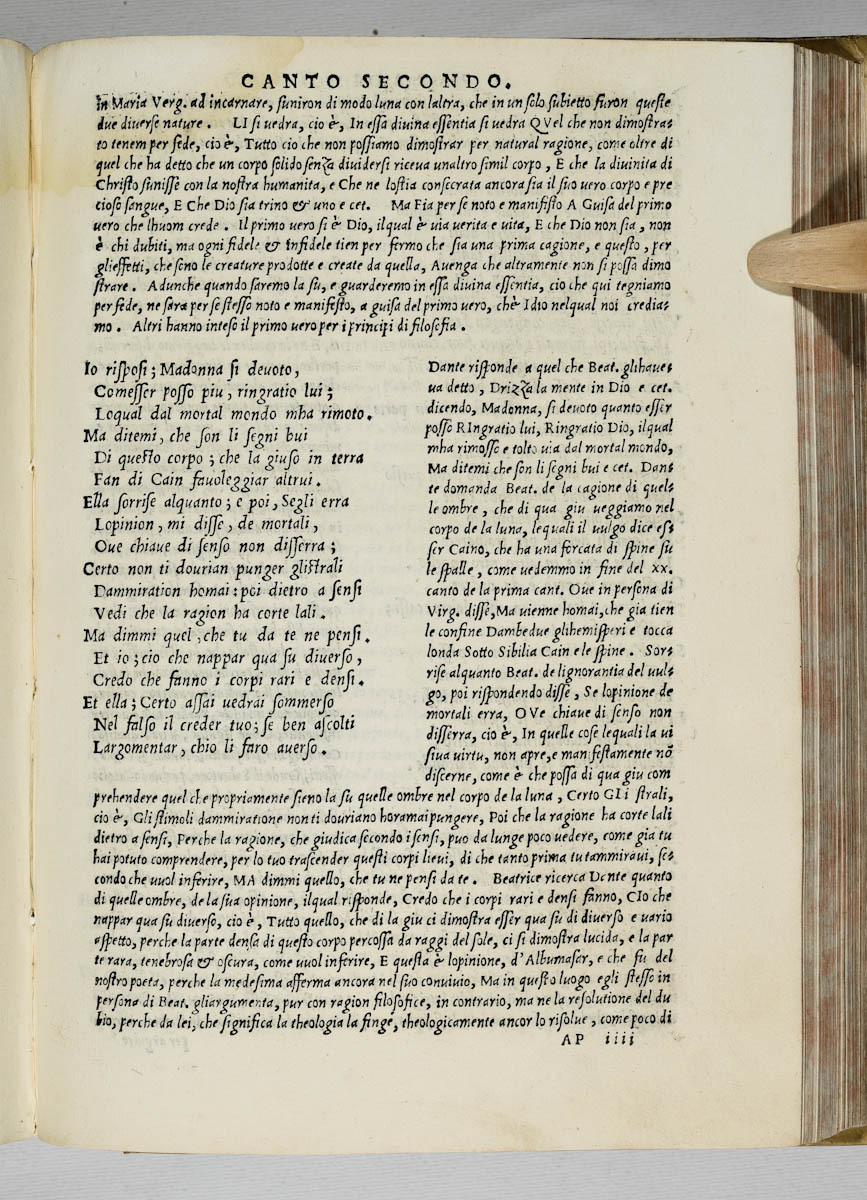 CANTO SECONDO.
in Maria Verg. ad incarnare, suniron di modo luna con laltra, che in un solo subietto furon queste
due diverse nature. LI si uedra, cio è, In essa divina essentia si uedra QVel che non dimostra-
to tenem per fede, cio è, Tutto cio che non possiamo dimostrar per natural ragione, come oltre di
quel che ha detto che un corpo solido senza dividersi riceva unaltro simil corpo, E che la divinita di
Christo sunisse con la nostra humanita, e Che ne lostia consecrata ancora sia il suo vero corpo e pre
cioso sangue, E Che Dio sia trino & uno e cet. Ma Fia per se noto e manifisto A Guisa del primo
vero che lhuom crede. Il primo uero si è Dio, ilqual è uia verita e uita, E che Dio non sia, non
è chi dubiti, ma ogni fidele & infidele tien per fermo che sia una prima cagione, e questo, per
glieffetti, che sono le creature prodotte e create da quella, Avenga che altramente non si possa dimo
strare. Adunche quando saremo la su, e guarderemo in essa divina essentia, cio che qui tegniamo
per fede, ne sara per se stesso noto e manifesto, a guisa del primo uero, ch'è Idio nelqual noi credia-
mo. Altri hanno inteso il primo uero per i principi di filosofia.
Io risposi; Madonna si devoto,
Comesser posso piu, ringratio lui;
Loqual dal mortal mondo mha rimoto.
Ma ditemi, che son li segni bui
Di questo corpo; che la giuso in terra
Fan di Cain favoleggiar altrui.
Ella sorrise alquanto; e poi, Segli erra
Lopinion, mi disse, de mortali,
Oue chiave di senso non disserra;
Certo non ti dourian punger glistrali
Dammiration homai: poi dietro a sensi
Vedi che la ragion ha corte lali.
Ma dimmi quel, che tu da te ne pensi.
Et io; cio che nappar qua su diverso,
Credo che fanno i corpi rari e densi.
Et ella; Certo assai uedrai sommerso
Nel falso il creder tuo; se ben ascolti
Largomentar, chio li faro averso.
Dante risponde a quel che Beat. glihaue-
ua detto, Drizza la mente in Dio e cet.
dicendo, Madonna, si devoto quanto esser
posso RIngratio lui, Ringratio Dio, ilqual
mha rimosso e tolto uia dal mortal mondo,
Ma ditemi che son li segni bui e cet. Dan-
te domanda Beat. de la cagione di quel-
le ombre, che di qua giu ueggiamo nel
corpo de la luna, lequali il uulgo dice es-
ser Caino, che ha una forcata di spine su
le spalle, come vedemmo in fine del xx.
canto de la prima cant. Oue in persona di
Virg. disse, Ma uienne homai, che gia tien
le confine Dambedue glihemisperi e tocca
londa Sotto Sibilia Cain e le spine. Sor-
rise alquanto Beat. de lignorantia del uul-
go, poi rispondendo disse, Se lopinione de
mortali erra, OVe chiave di senso non
disserra, cio è, In quelle cose lequali la ui
siua virtu, non apre, e manifestamente nō
discerne, come è che possa di qua giu com
prehendere quel che propriamente sieno la su quelle ombre nel corpo de la luna, Certo GLi strali,
cio è, Gli stimoli dammiratione non ti douriano horamai pungere, Poi che la ragione ha corte lali
dietro a sensi, Perche la ragione, che giudica secondo i sensi, puo da lunge poco uedere, come gia tu
hai potuto comprendere, per lo tuo trascender questi corpi lieui, di che tanto prima tu tammiraui, se-
condo che uuol inferire, MA dimmi quello, che tu ne pensi da te. Beatrice ricerca Dante quanto
di quelle ombre, de la sua opinione, ilqual risponde, Credo che i corpi rari e densi fanno, CIo che
nappar qua su diverso, cio è, Tutto quello, che di la giu ci dimostra esser qua su di diverso e uario
aspetto, perche la parte densa di questo corpo percossa da raggi del sole, ci si dimostra lucida, e la par
te rara, tenebrosa & oscura, come uuol inferire, E questa è lopinione, d'Albumasar, e che fu del
nostro poeta, perche la medesima afferma ancora nel suo convivio, Ma in questo luogo egli stesso in
persona di Beat. gliargumenta, pur con ragion filosofice, in contrario, ma ne la resolutione del du
bio, perche da lei, che significa la theologia la finge, theologicamente ancor lo risolue, come poco di
AP iiii